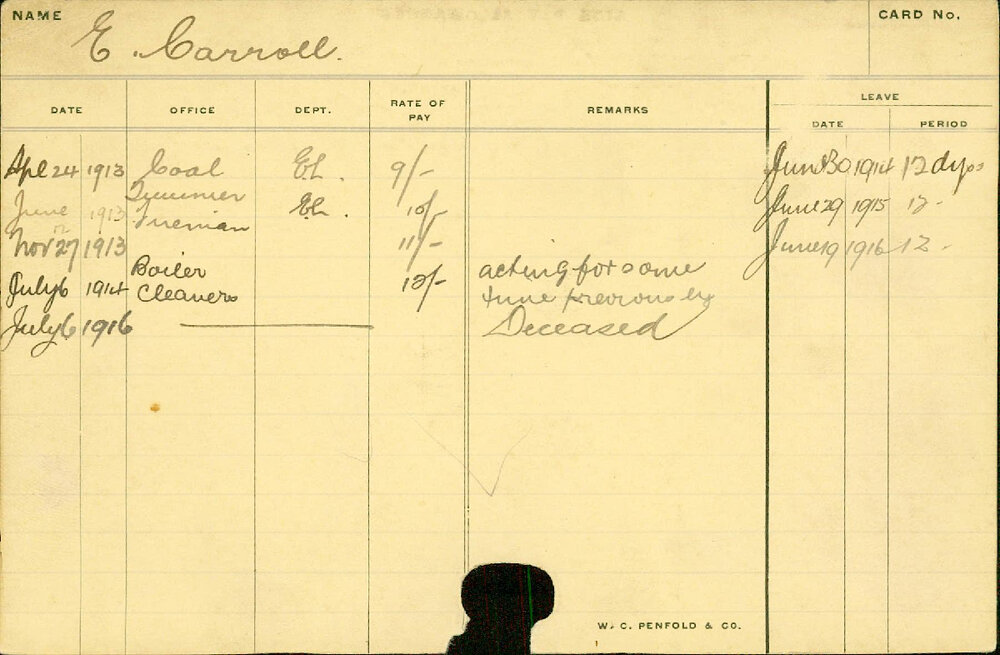 NAME
E. Carroll.
CARD No.
DATE OFFICE DEPT. RATE OF PAY REMARKS LEAVE
DATE PERIOD
Apl 24 1913 Coal EL. 9/- June 30 1914 12 dys
Trimmer
June 1913 Fireman EL. 10/- June 29 1915 12 -
Nov 27 1913 11/- June 19 1916 12 -
Boiler acting for some
July 6 1914 Cleaners 12/- time previously
July 6 1916 Deceased
W. C. PENFOLD & CO.